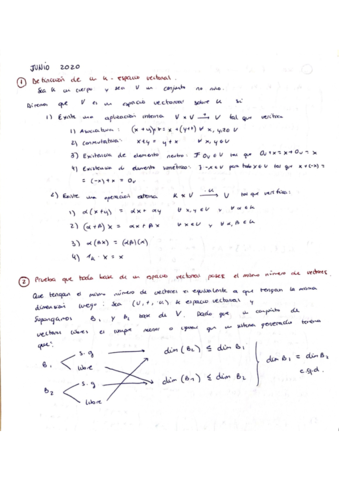 JUNIO 2020
① Definición de un K-espacio vectorial.
Sea K un cuerpo y sea V un conjunto no vacío.
Diremos que V es un espacio vectorial sobre K si
1) Existe una aplicación interna V x V → V tal que verifica
1) Asociativa: (x+y)+z = x+(y+z) ∀ x, y, z ∈ V
2) conmutativa: x+y = y+x ∀ x, y ∈ V
3) Existencia de elemento neutro: ∃ 0ᵥ ∈ V tal que 0ᵥ+x = x+0ᵥ = x
4) Existencia de elemento simétrico: ∃ -x ∈ V para todo x ∈ V tal que x+(-x) =
= (-x)+x = 0ᵥ
2) Existe una operación externa K x V → V tal que verifica:
1) α(x+y) = αx + αy ∀ x, y ∈ V ∀ α ∈ K
2) (α+β)x = αx + βx ∀ x ∈ V ∀ α, β ∈ K
3) α(βx) = (αβ)(x)
4) 1 · x = x
② Prueba que toda base de un espacio vectorial posee el mismo número de vectores
Que tengan el mismo número de vectores es equivalente a que tengan la misma
dimensión luego: Sea (V, +, ·K) K espacio vectorial y
supongamos B₁ y B₂ base de V. Dado que, un conjunto de
vectores libres es siempre menor o igual que un sistema generador tenemos
que:
B₁ s.g libre dim (B₂) ≤ dim B₁
dim B₁ = dim B₂
c.q.d.
B₂ s.g libre dim (B₁) ≤ dim B₂